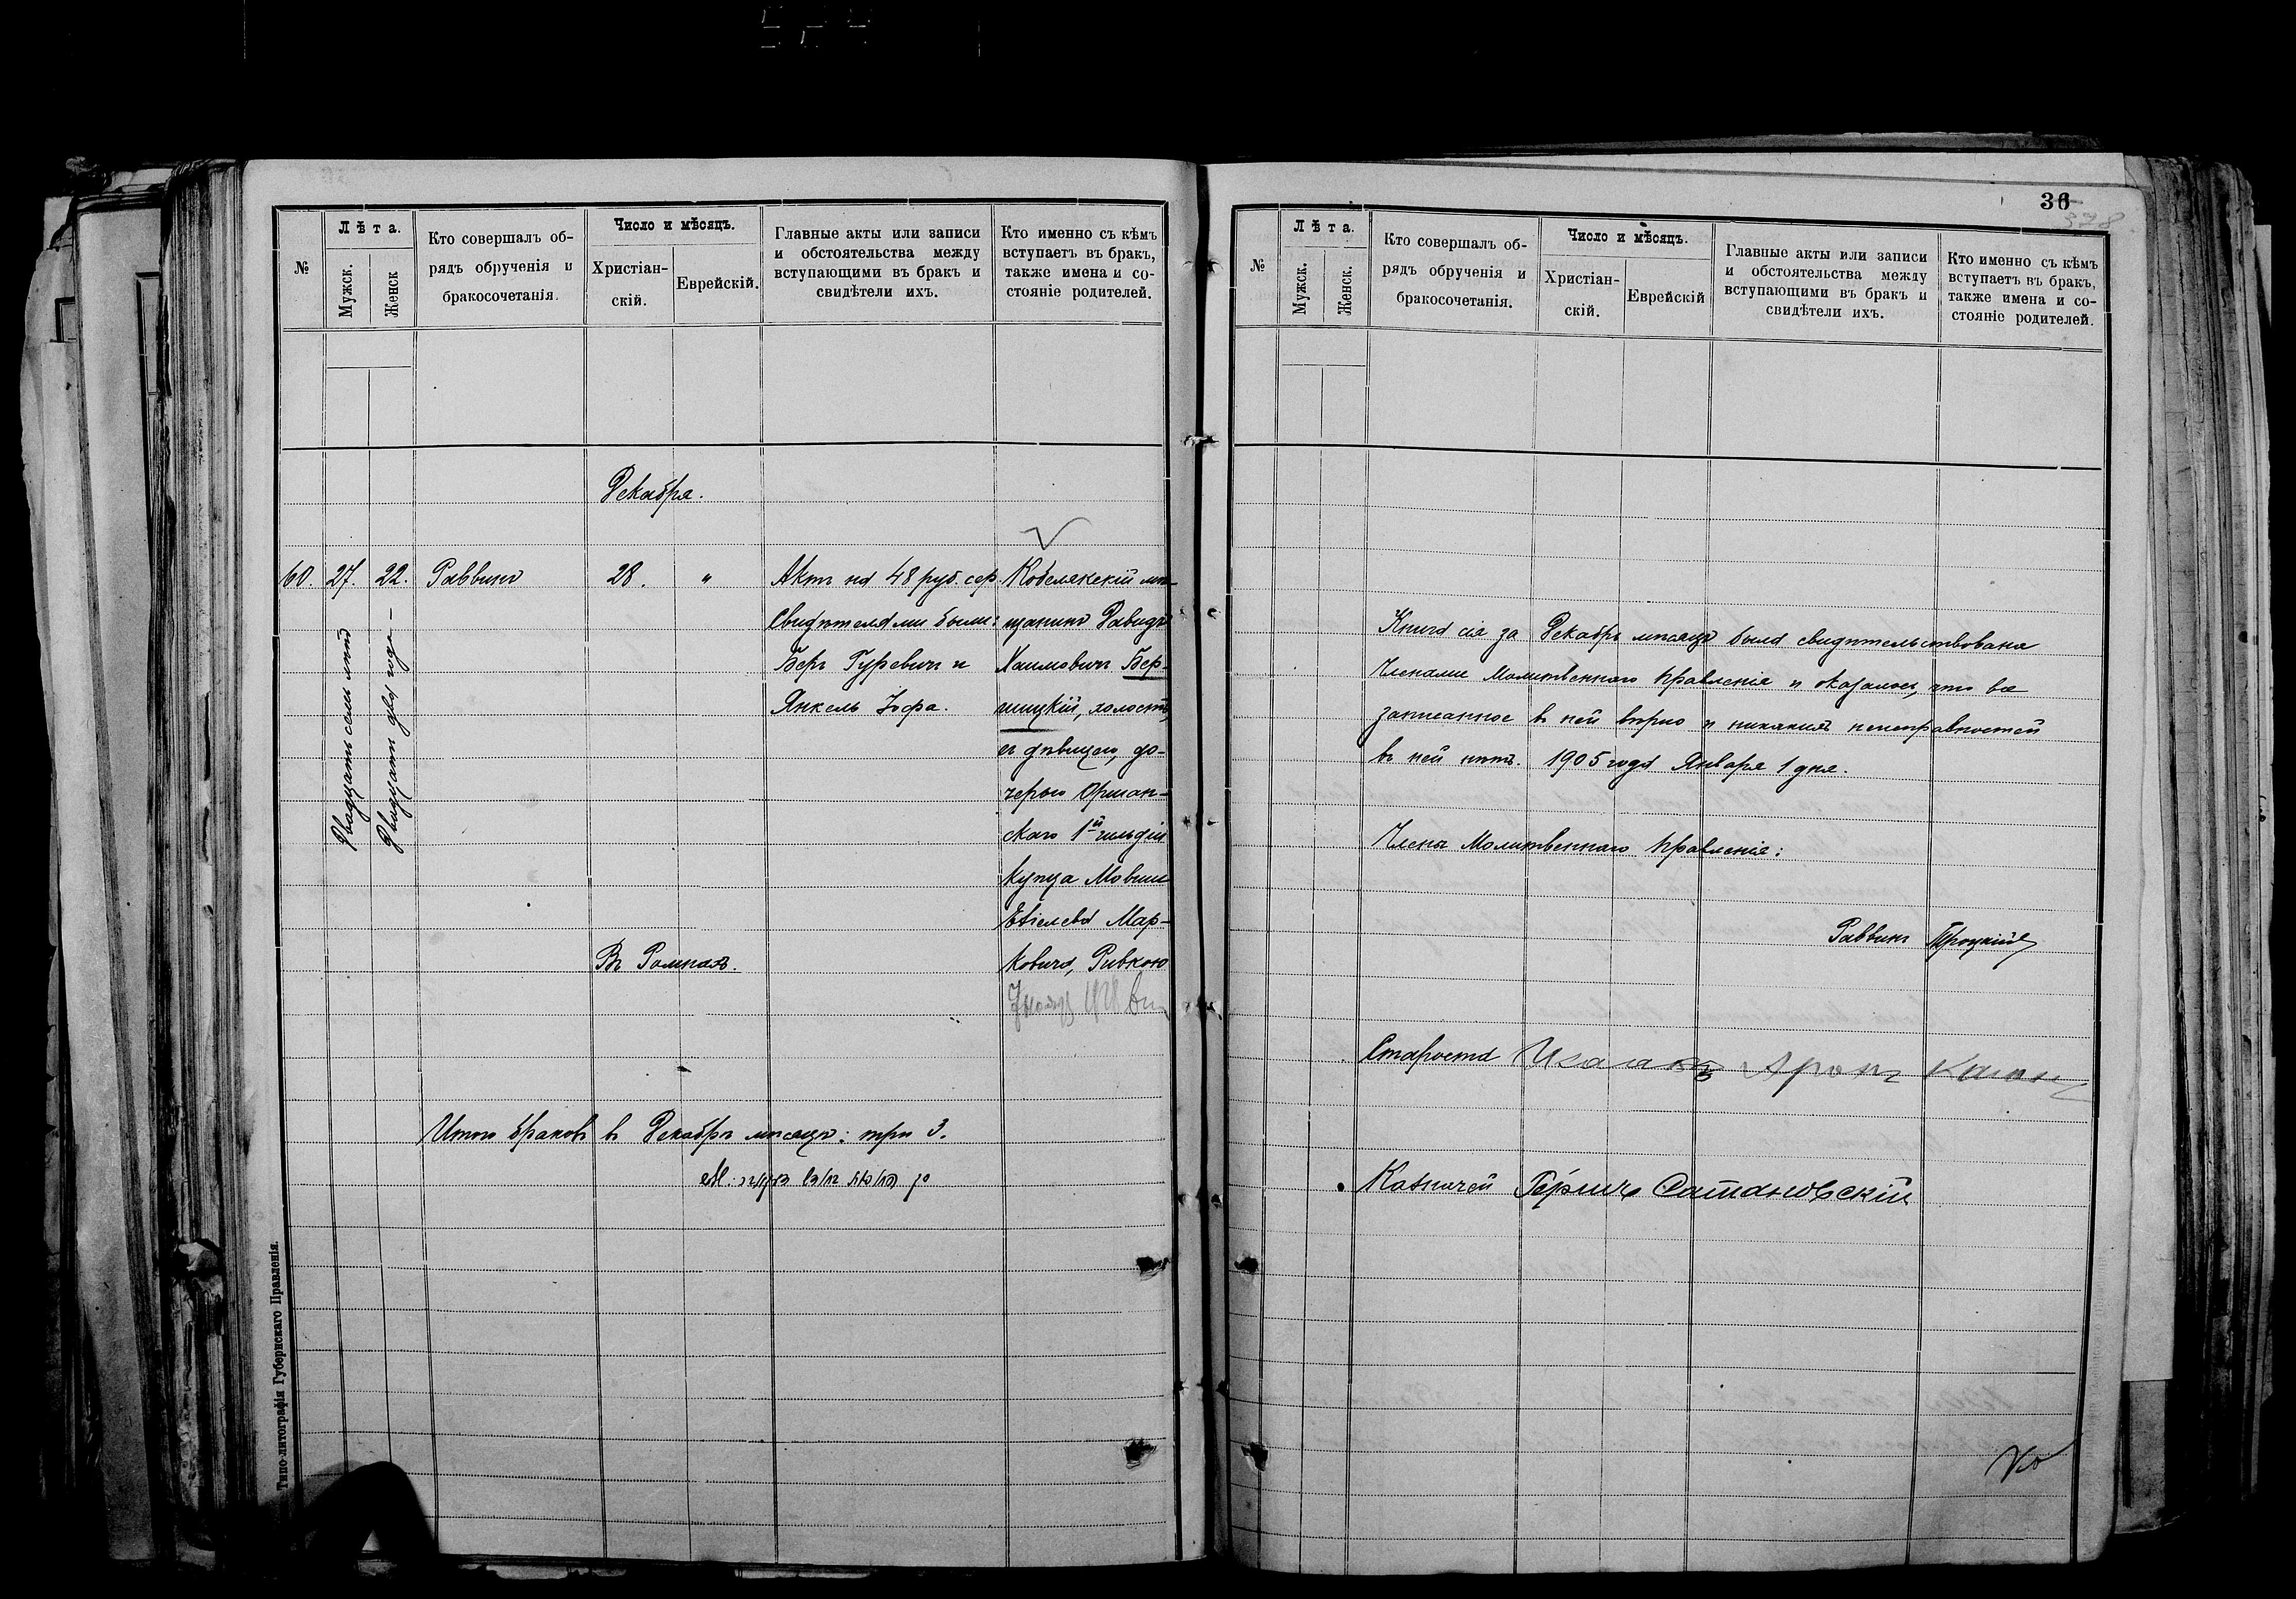 №
Лѣта.
Мужск.
Женск
Кто совершалъ об-
рядъ обрученія и
бракосочетанія.
Число и мѣсяцъ.
Христіан-
скій.
Еврейскій.
Главные акты или записи
и обстоятельства между
вступающими въ бракъ и
свидѣтели ихъ.
Кто именно съ кѣмъ
вступаетъ въ бракъ,
также имена и со-
стояніе родителей.
Декабря.
60. 27. 22. Раввинъ 28. "
Двадцать семь лѣтъ
Двадцать два года —
Актъ на 48 руб. сер.
Свидѣтелями были:
Беръ Гуревичъ и
Янкель Іофа.
Кобелякскій мѣ-
щанинъ Давидъ
Хаимовичъ Бер-
шицкій, холостъ,
съ дѣвицею, до-
черью Оршан-
скаго 1й гильдіи
купца Мовши
Евіелева Мар-
ковича, Ривкою
Въ Ромнахъ.
Итого браковъ въ Декабрѣ мѣсяцѣ: три 3.
Типо-литографія Губернскаго Правленія.
36
328
№
Лѣта.
Мужск.
Женск.
Кто совершалъ об-
рядъ обрученія и
бракосочетанія.
Число и мѣсяцъ.
Христіан-
скій.
Еврейскій
Главные акты или записи
и обстоятельства между
вступающими въ бракъ и
свидѣтели ихъ.
Кто именно съ кѣмъ
вступаетъ въ бракъ,
также имена и со-
стояніе родителей.
Книга сія за Декабрь мѣсяцъ была свидѣтельствована
Членами Молитвеннаго Правленія и оказалось, что все
записанное въ ней вѣрно и никакихъ неисправностей
въ ней нѣтъ. 1905 года Января 1 дня.
Члены Молитвеннаго Правленія:
Раввинъ Троцкій
Староста Исаакъ Аронъ Каганъ
Казначей Гершъ Сатановскій